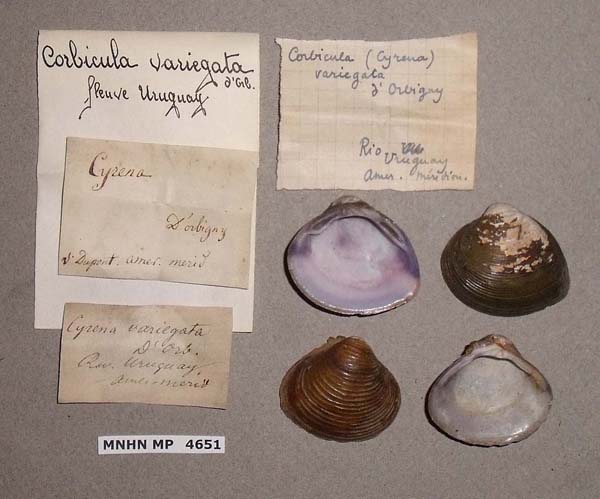 Corbicula variegata
d'Orb.
fleuve Uruguay
Cyrena
D'orbigny
Dupont. amer. merid
Cyrena variegata
D'Orb.
Uruguay.
amer-merid
MNHN MP 4651
Corbicula (Cyrena)
variegata
d'Orbigny
Rio
Uruguay
Amer. méridion.